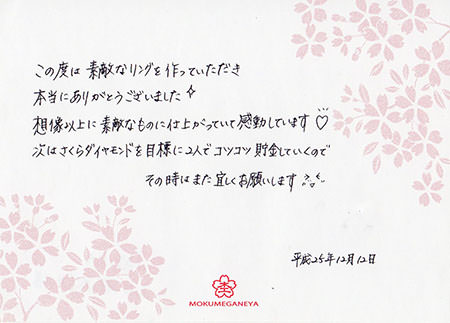 この度は素敵なリングを作っていただき
本当にありがとうございました
想像以上に素敵なものに仕上がっていて感動しています♡
次はさくらダイヤモンドを目標に2人でコツコツ貯金していくので
その時はまた宜しくお願いします
平成25年12月12日
MOKUMEGANEYA